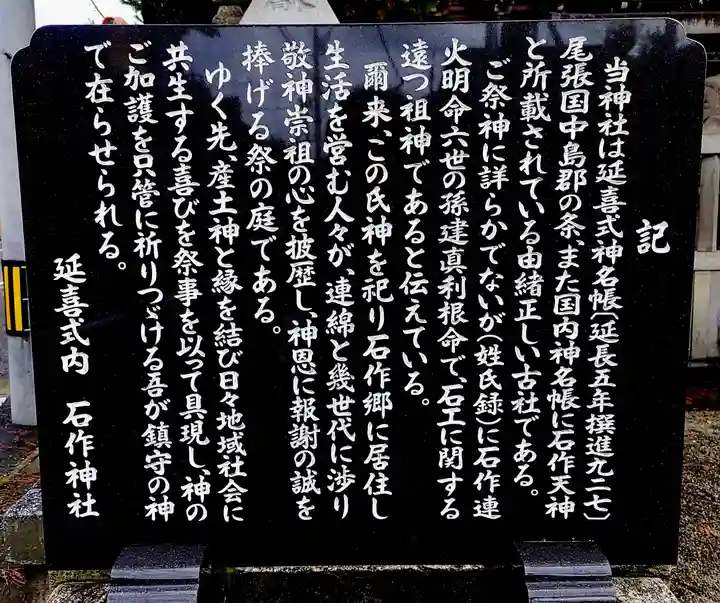 記
当神社は延喜式神名帳(延長五年撰進九二七)
尾張国中島郡の条、また国内神名帳に石作天神
と所載されている由緒正しい古社である。
ご祭神に詳らかでないが(姓氏録)に石作連
火明命六世の孫建真利根命で、石工に関する
遠つ祖神であると伝えている。
爾来、この氏神を祀り石作郷に居住し
生活を営む人々が、連綿と幾世代に渉り
敬神崇祖の心を披歴し、神恩に報謝の誠を
捧げる祭の庭である。
ゆく先、産土神と縁を結び日々地域社会に
共生する喜びを祭事を以って具現し、神の
ご加護を只管に祈りつゞける吾が鎮守の神
で在らせられる。
延喜式内 石作神社